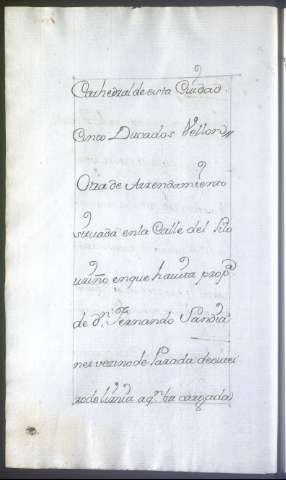 Cathedral de esta Ciudad.
Cinco Ducados Vellon
Otra de Arrendamiento
situada en la Calle del
en que havita prop.a
de d.n Fernando
nes vezino de Parada deoutei
ro de limia aq.n tta cargada